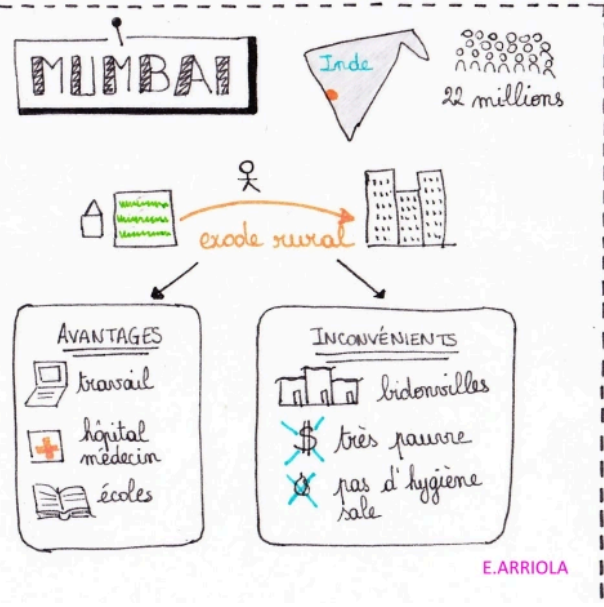 MUMBAI
Inde
22 millions
exode rural
AVANTAGES
travail
hôpital
médecin
écoles
INCONVÉNIENTS
bidonvilles
$ très pauvre
pas d'hygiène
sale
E.ARRIOLA